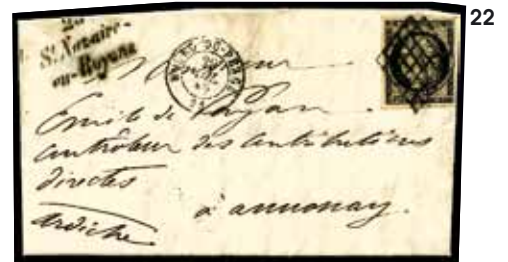 22
26
St. Nazaire-
en-Royans
Monsieur
Emile de Payan
contrôleur des contributions
directes
à annonay.
Ardèche